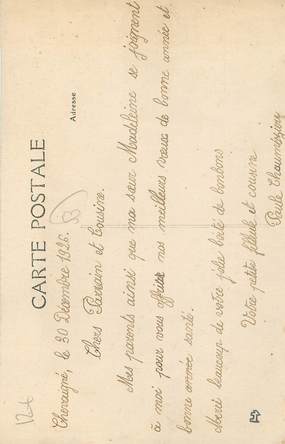 CARTE POSTALE
Adresse
Chevaigné, le 30 Décembre 1926.
Chers Parrain et Cousine.
Mes parents ainsi que ma sœur Madeleine se joignent
à moi pour vous offrir nos meilleurs vœux de bonne année et
bonne année santé.
Merci beaucoup de votre jolie boîte de bonbons
Votre petite filleule et cousine
Paule